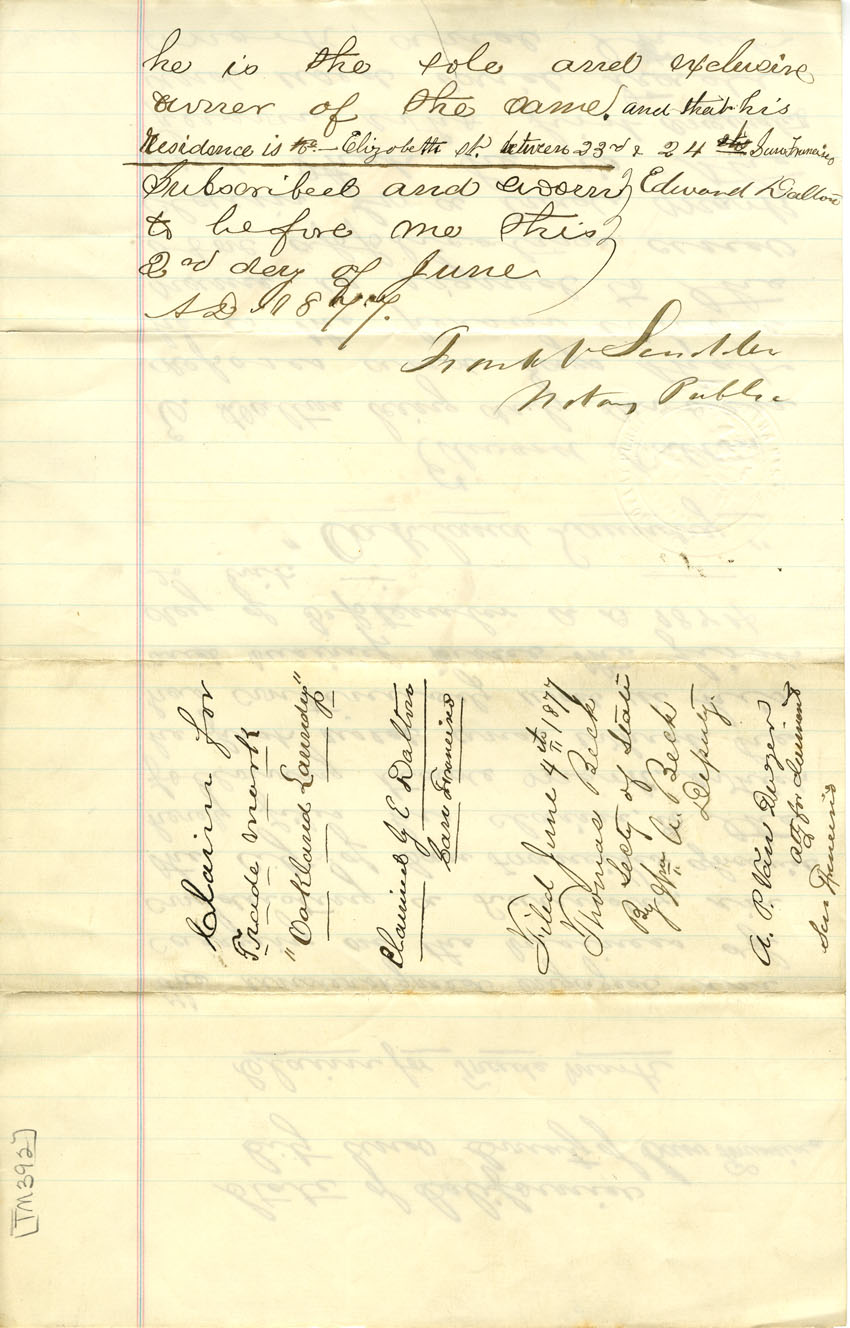 he is the sole and exclusive
owner of the same. and that his
Residence is No. — Elizabeth st. between 23rd & 24 sts San Francisco
Subscribed and sworn } Edward Dalton
to before me this
2nd day of June
A D 1877.
Notary Public
Claim for
Trade Mark
"Oakland Laundry"
Claimed by E Dalton
San Francisco
Filed June 4th 1877
Thomas Beck
Secty of State
By Wm A. Beck
Deputy.
A. P. Van Duzer
atty for
San Francisco
[TM392]